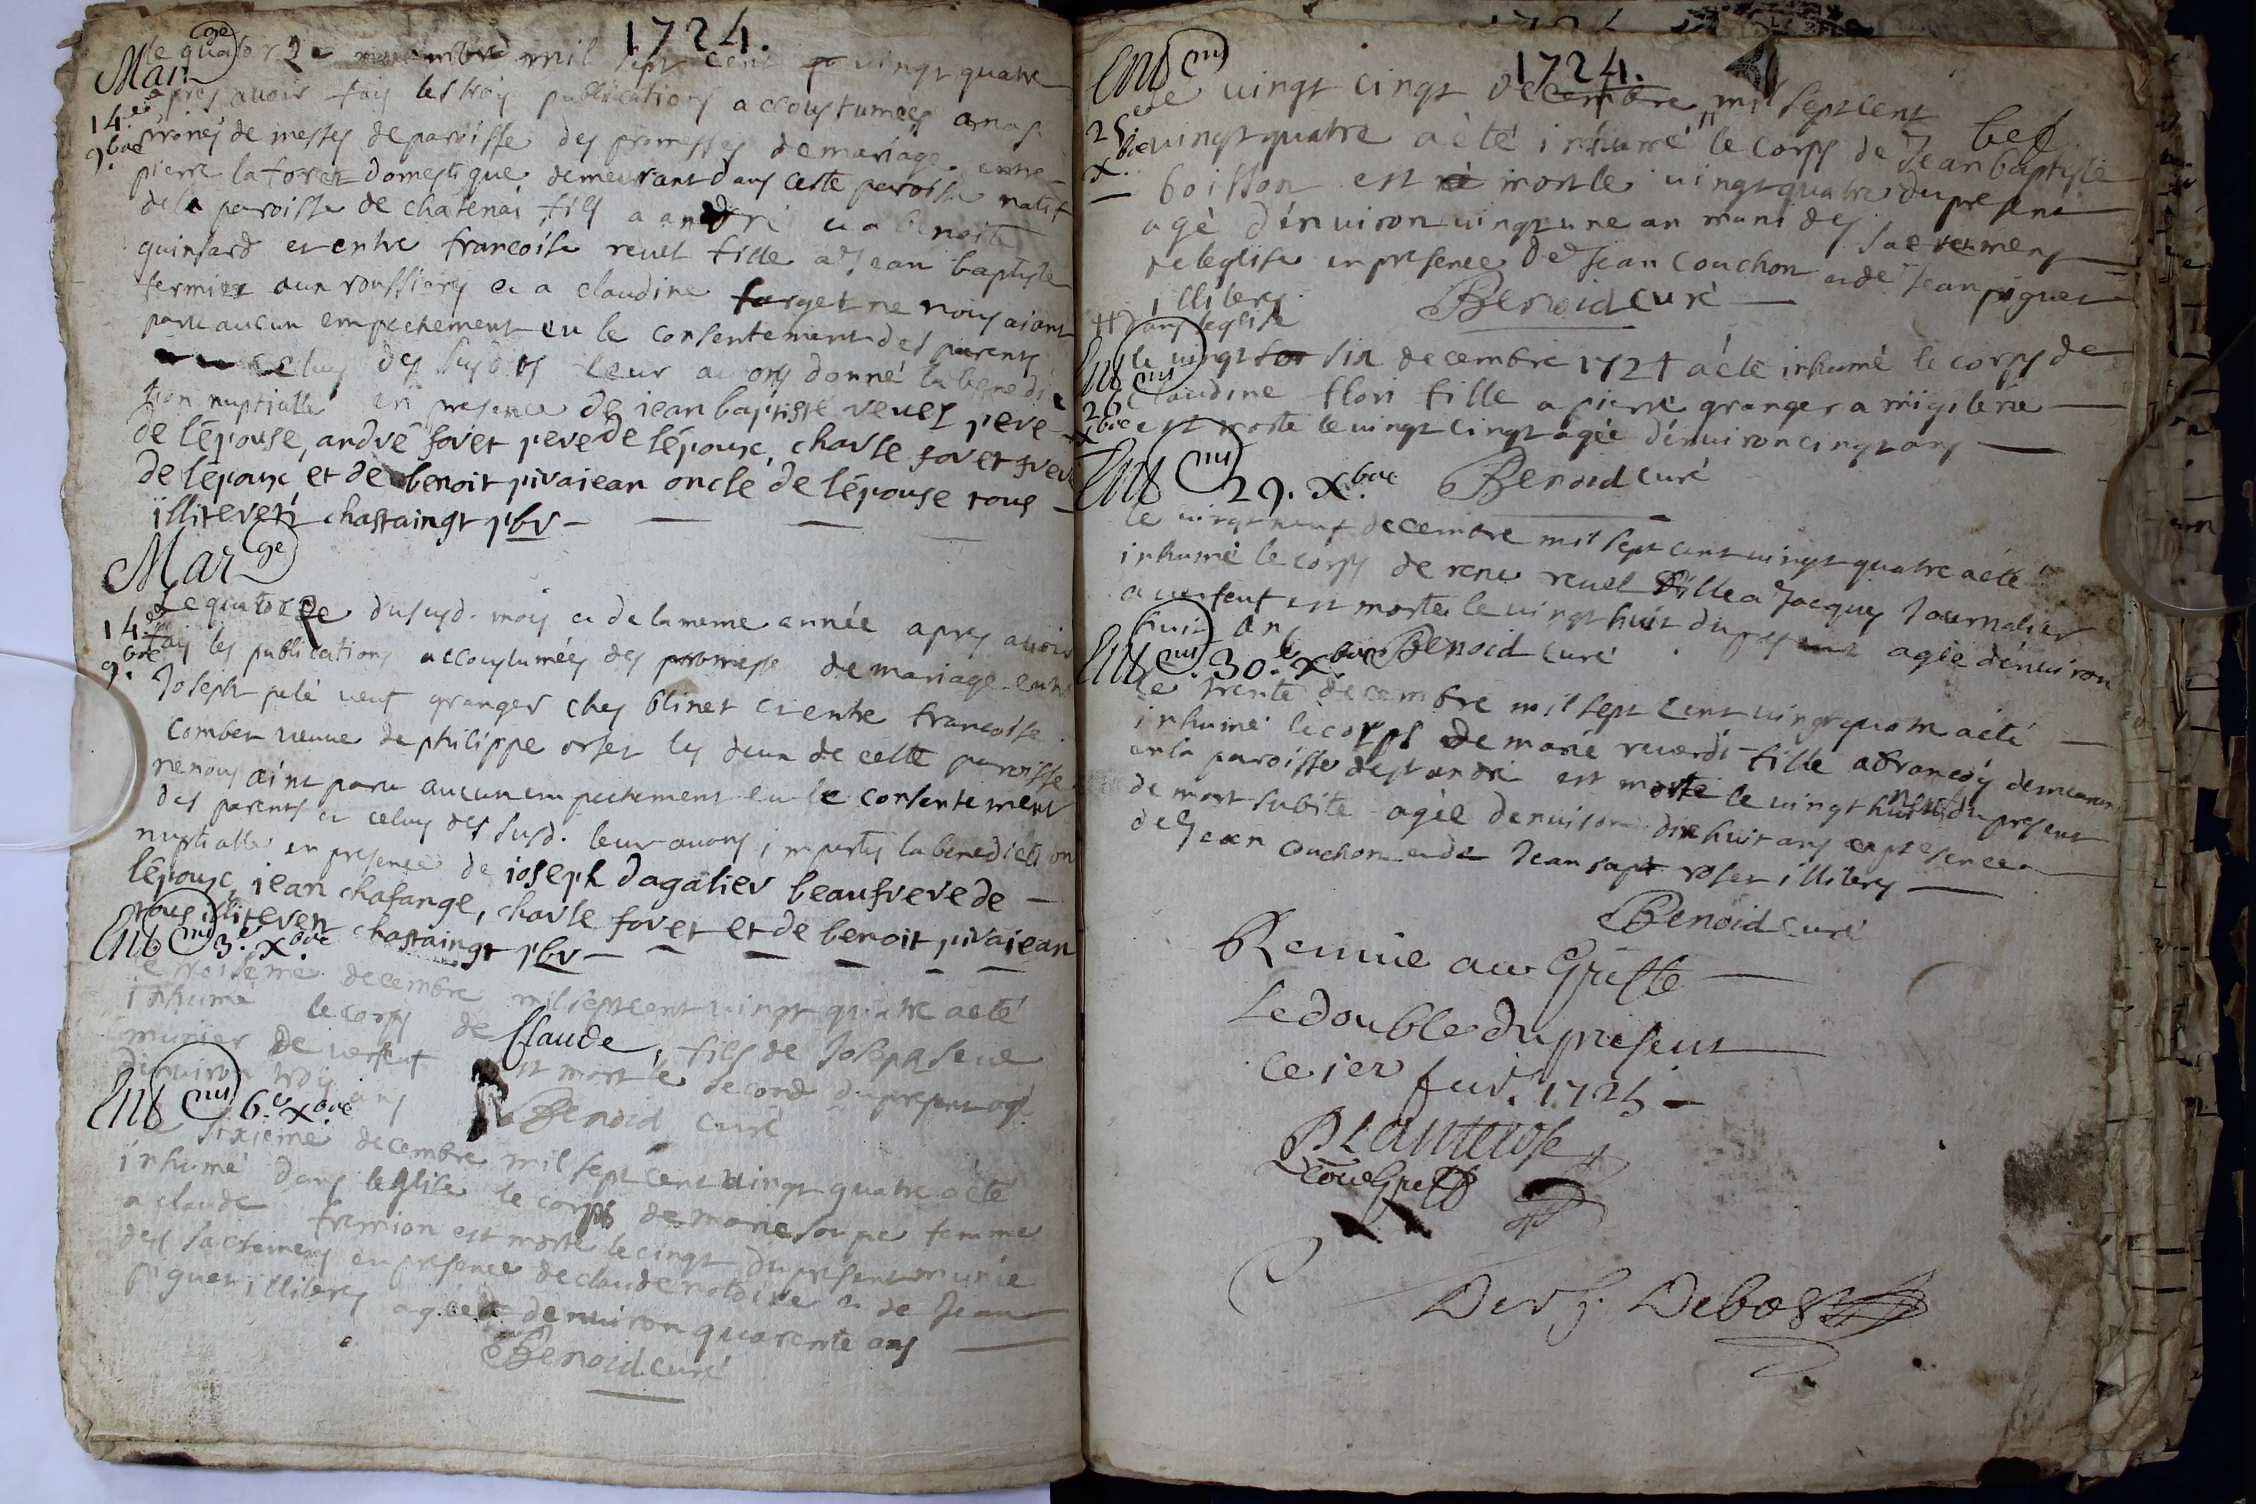 1724.
Mar ge
le quatorze novembre mil sept cent vingt quatre
14.e
9.bre
apres avoir fait les trois publications accoustumées a nos
prônes de messes de paroisse des promesses de mariage entre
pierre la foret domestique demeurant dans cette paroisse natif
de la paroisse de chatenai fils a andré et a benoite
guinsard et entre francoise revel fille a Jean baptiste
fermier aux roussieres et a claudine farget ne nous aiant
paru aucun empechement eu le consentement des parents
et celuy des susdits leur avons donné la benedi
tion nuptialle en presence de jean baptiste revel pere
de lépouse, andré foret pere de lépoux, charle foret frere
de lépoux et de benoit pivajean oncle de lépouse tous
illiterés chastaingt pbr
Mar ge
14.e
9.bre
Le quatorze du susd. mois et de la meme année apres avoir
fait les publications accoustumées des promesse de mariage entre
Joseph pelé veuf granger ches blinet et entre francoise
combet veuve de philippe orset les deux de cette paroisse
ne nous aint paru aucun empechement eu le consentement
des parents et celuy des susd. leur avons imparty la benediction
nuptialle en presence de joseph dagalier beaufrere de
lépoux, jean chafange, charle foret et de benoit pivajean
tous illiteren chastaingt pbr
Ent mt 3.e xbre
le troiseme decembre mil sept cent vingt quatre a eté
inhumé le corps de Claude, fils de Joseph seve
munier de versent est mort le second du present agé
dénviron trois ans Benoid curé
Ent mt 6.e xbre
Le sixieme decembre mil sept cent vingt quatre a été
inhumé dans leglise le corps de marie femme
a claude fremion est morte le cinqt du present munie
des sacremens en presence de claude et de Jean
piguet illiterés agée denviron quarente ans
Benoid curé
1724.
Ent mt
25.e
xbre
Le vingt cinqt decembre mil sept cent
vingt quatre a été inhumé # le corps de Jean baptiste bef
boisson est mort le vingt quatre du present
agé dénviron vingt une an muni des sacremens
de leglise en presence de Jean couchon et de Jean piguet
illiterés
# dans leglise
Benoid curé
Ent mt
26.e
xbre
le vingt six decembre 1724 a été inhumé le corps de
claudine flori fille a pierre granger a
est morte le vingt cinqt agée dénviron cinqt ans
Benoid curé
Ent mt 29. xbre
le vingt neuf decembre mil sept cent vingt quatre a été
inhumé le corps de rene revel fille a Jacques Journalier
a versent est morte le vingt huit du present agée dénviron
huit ans Benoid curé
Ent mt 30.e xbre
le trente decembre mil sept cent vingt quatre a été
inhumé le corps de marie reverdi fille a francois demeurant
en la paroisse de st andré est morte le vingt neuf du present
de mort subite agée denviron dixhuit ans en presence
de Jean couchon et de Jean roset illiterés
Benoid curé
Remis au Greffe
Le double du present
ce 1er fevr. 1725